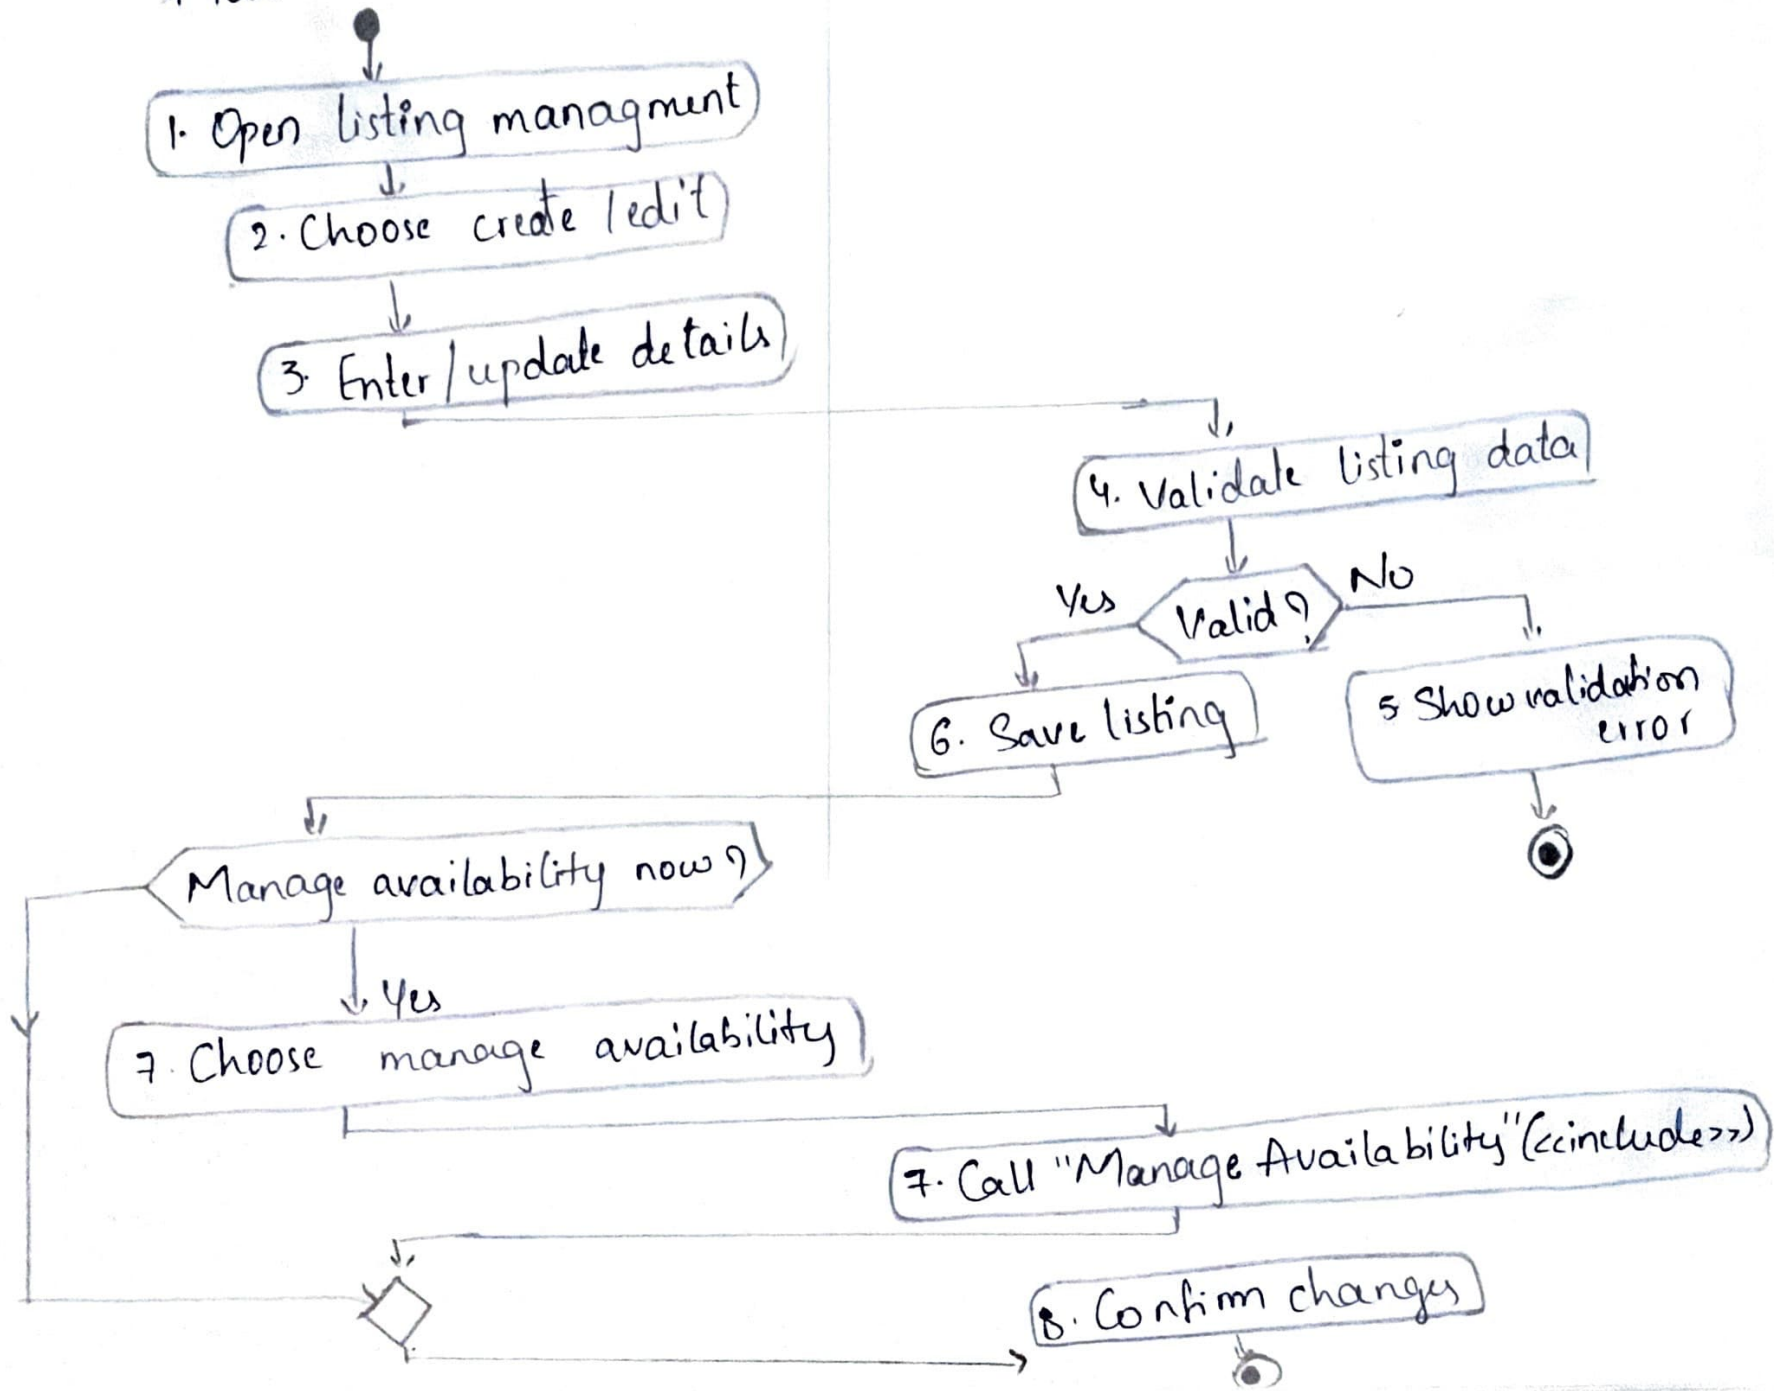 1. Open listing managment
2. Choose create / edit
3. Enter / update details
4. Validate listing data
Yes
Valid?
No
6. Save listing
5 Show validation
error
Manage availability now?
Yes
7. Choose manage availability
7. Call "Manage Availability" (<<include>>)
8. Confirm changes